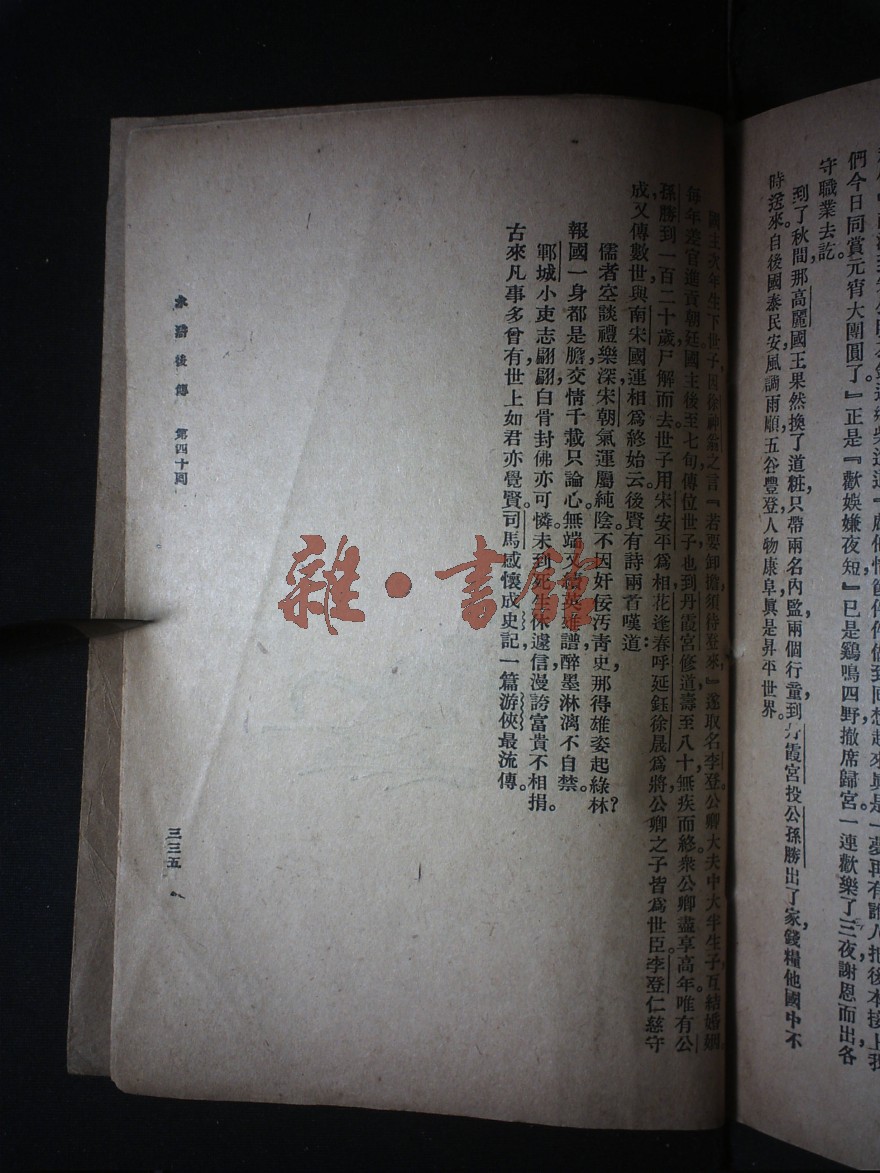 們今日同賞元宵大團圓了。』正是『歡娛嫌夜短』已是鷄鳴四野撤席歸宮一連歡樂了三夜謝恩而出各
守職業去訖。
到了秋間那高麗國王果然換了道粧只帶兩名內監兩個行童到丹霞宮投公孫勝出了家錢糧他國中不
時送來自後國泰民安風調雨順五谷豐登人物康阜眞是昇平世界。
國主次年生下世子因徐神翁之言『若要卸擔須待登來』遂取名李登公卿大夫中大半生子互結婚姻
每年差官進貢朝廷國主後至七旬傳位世子也到丹霞宮修道壽至八十無疾而終衆公卿盡享高年唯有公
孫勝到一百二十歲尸解而去世子用宋安平爲相花逢春呼延鈺徐晟爲將公卿之子皆爲世臣李登仁慈守
成又傳數世與南宋國運相爲終始云。後賢有詩兩首嘆道：
儒者空談禮樂深宋朝氣運屬純陰不因奸佞汚青史那得雄姿起綠林？
報國一身都是膽交情千載只論心。無端又續英雄譜醉墨淋漓不自禁。
鄆城小吏志翩翩白骨封佛亦可憐未到死生休遽信漫誇富貴不相捐。
古來凡事多曾有世上如君亦覺賢。司馬感懷成史記一篇游俠最流傳。
水滸後傳 第四十回
三三五
雜·書館